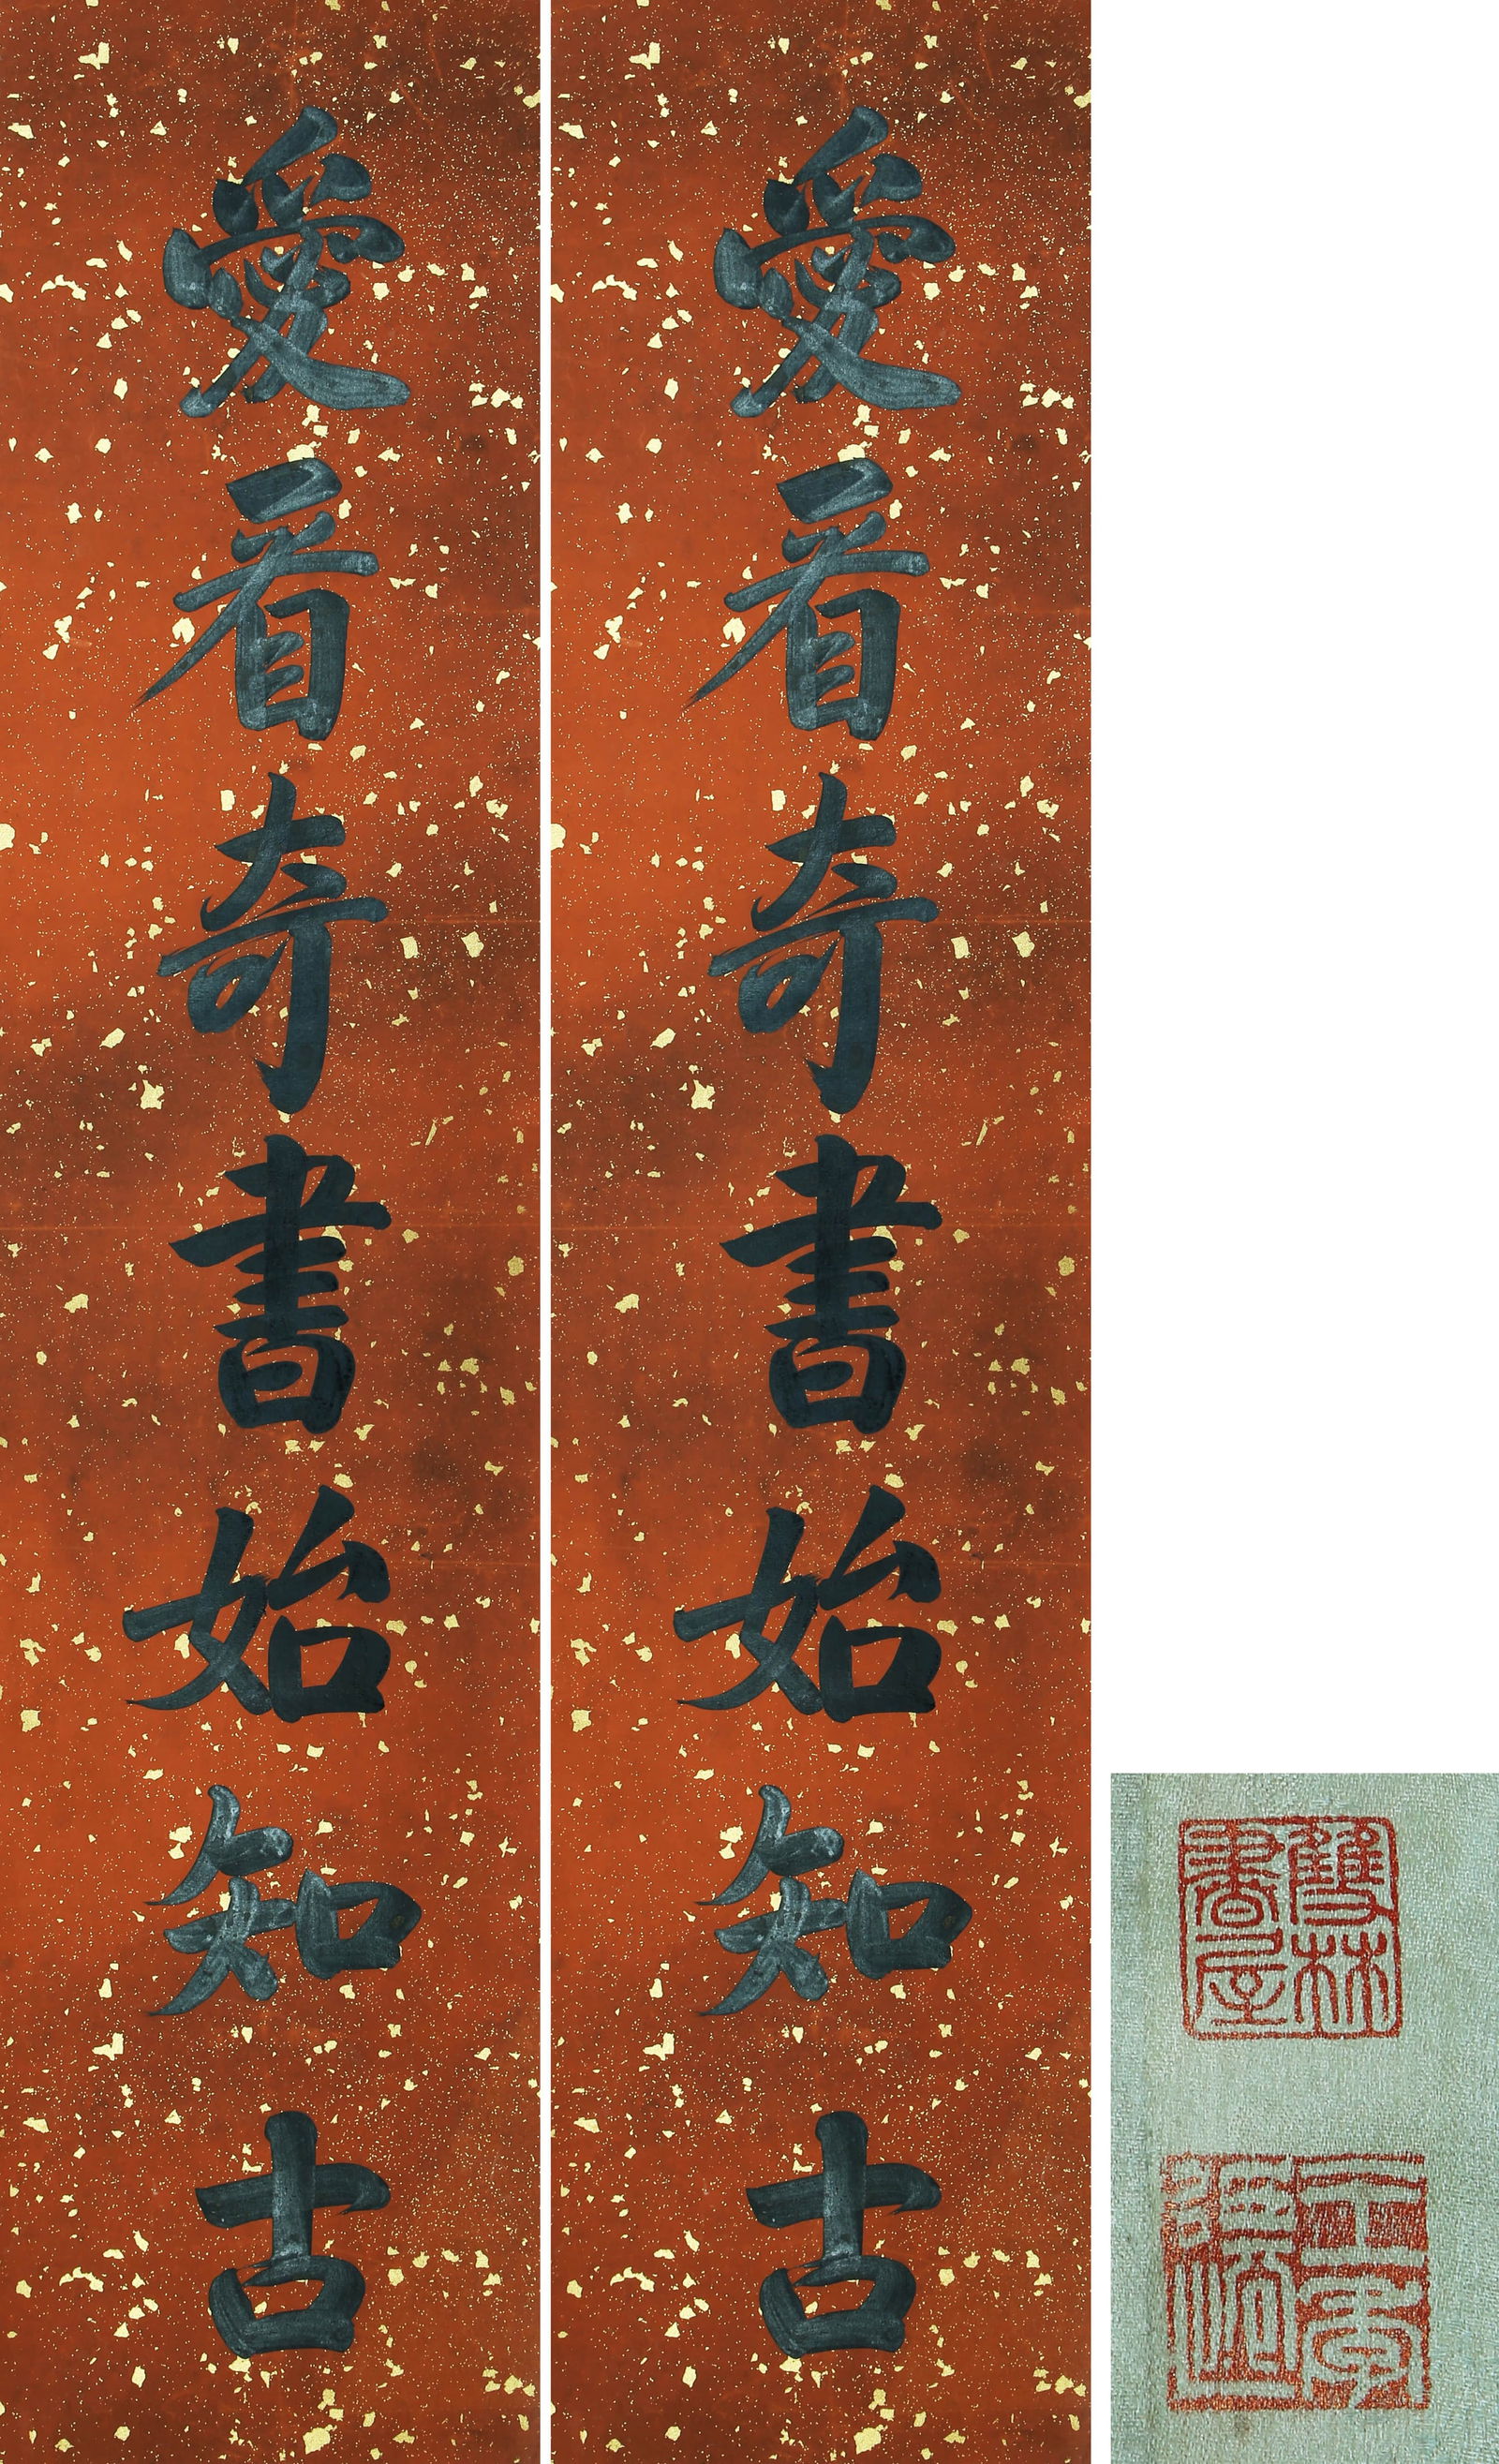 愛看奇書始知古
愛看奇書始知古
雙林
書屋